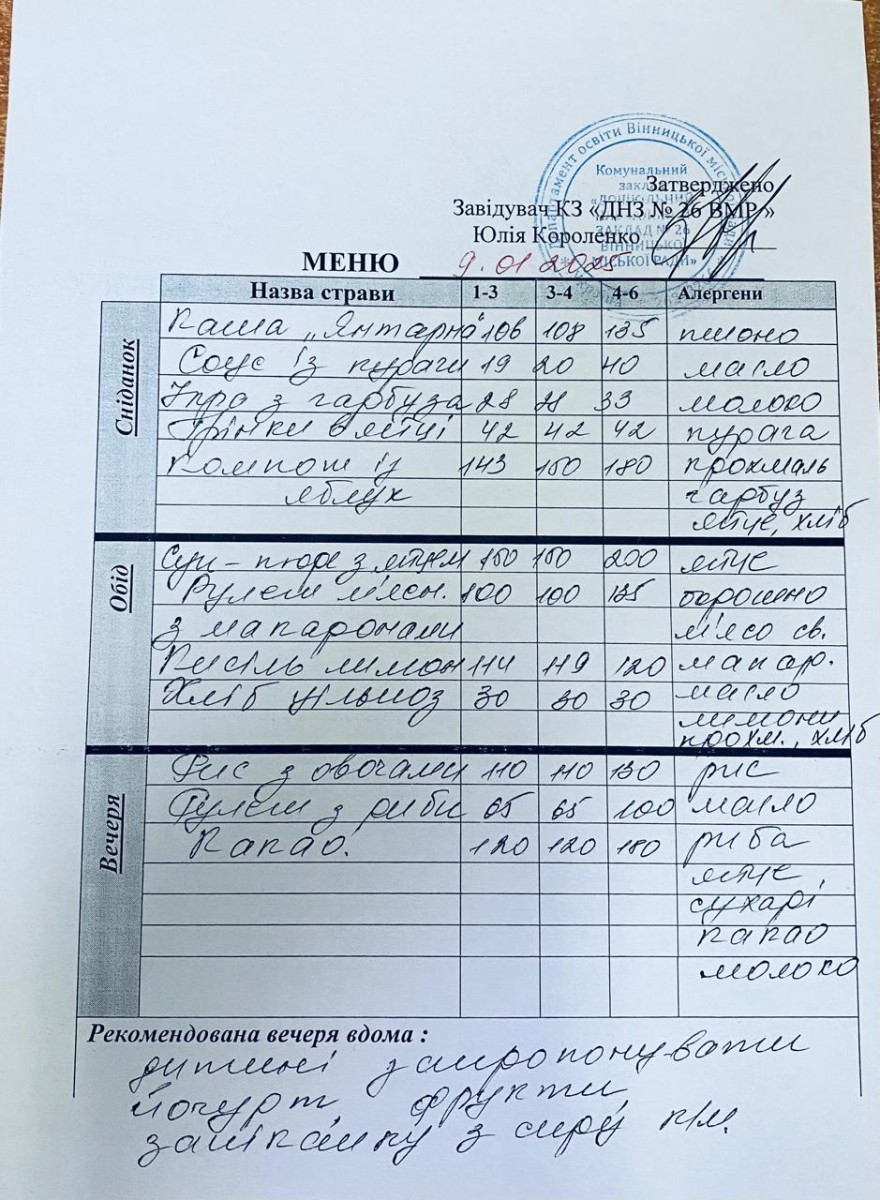 Департамент освіти Вінницької міської ради
Комунальний
заклад
«ДОШКІЛЬНИЙ
ЗАКЛАД № 26
ВІННИЦЬКОЇ
МІСЬКОЇ РАДИ»
Затверджено
Завідувач КЗ «ДНЗ № 26 ВМР »
Юлія Короленко
МЕНЮ 9.01 2025
Назва страви 1-3 3-4 4-6 Алергени
Сніданок
Каша „Янтарна" 106 108 135 пшоно
Соус із кураги 19 20 40 масло
Ікра з гарбуза 28 28 33 молоко
Грінки в яйці 42 42 42 курага
Компот із 143 150 180 крохмаль
яблук гарбуз
яйце, хліб
Обід
Суп-пюре з яйцем 150 150 200 яйце
Рулет м'ясн. 100 100 135 борошно
з макаронами м'ясо св.
Кисіль лимон 114 119 120 макар.
Хліб цільноз 30 30 30 масло
лимони
крохм., хліб
Вечеря
Рис з овочами 110 110 130 рис
Рулет з риби 65 65 100 масло
Какао. 120 120 180 риба
яйце,
сухарі
какао
молоко
Рекомендована вечеря вдома :
дитині запропонувати
йогурт, фрукти,
запіканку з сиру к/м.